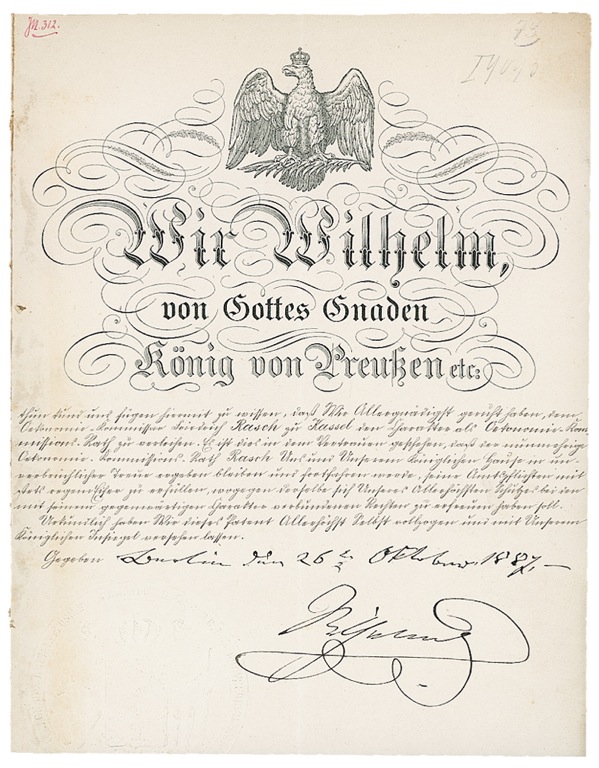 №. 312.
73
Wir Wilhelm,
von Gottes Gnaden
König von Preußen etc:
thun kund und fügen hiermit zu wissen, daß Wir Allergnädigst geruht haben, dem
Oekonomie-Kommissar Friedrich Rasch zu Kassel den Charakter als Oekonomie-Kom-
missions-Rath zu verleihen. Es ist dies in dem Vertrauen geschehen, daß der nunmehrige
Oekonomie-Kommissions-Rath Rasch Uns und Unserem Königlichen Hause in un-
verbrüchlicher Treue ergeben bleiben und fortfahren werde, seine Amtspflichten mit
stets regem Eifer zu erfüllen, wogegen derselbe sich Unseres Allerhöchsten Schutzes bei den
mit seinem gegenwärtigen Charakter verbundenen Rechten zu erfreuen haben soll.
Urkundlich haben Wir dieses Patent Allerhöchst Selbst vollzogen und mit Unserem
Königlichen Insiegel versehen lassen.
Gegeben Berlin den 26 Oktober 1887.
Wilhelm